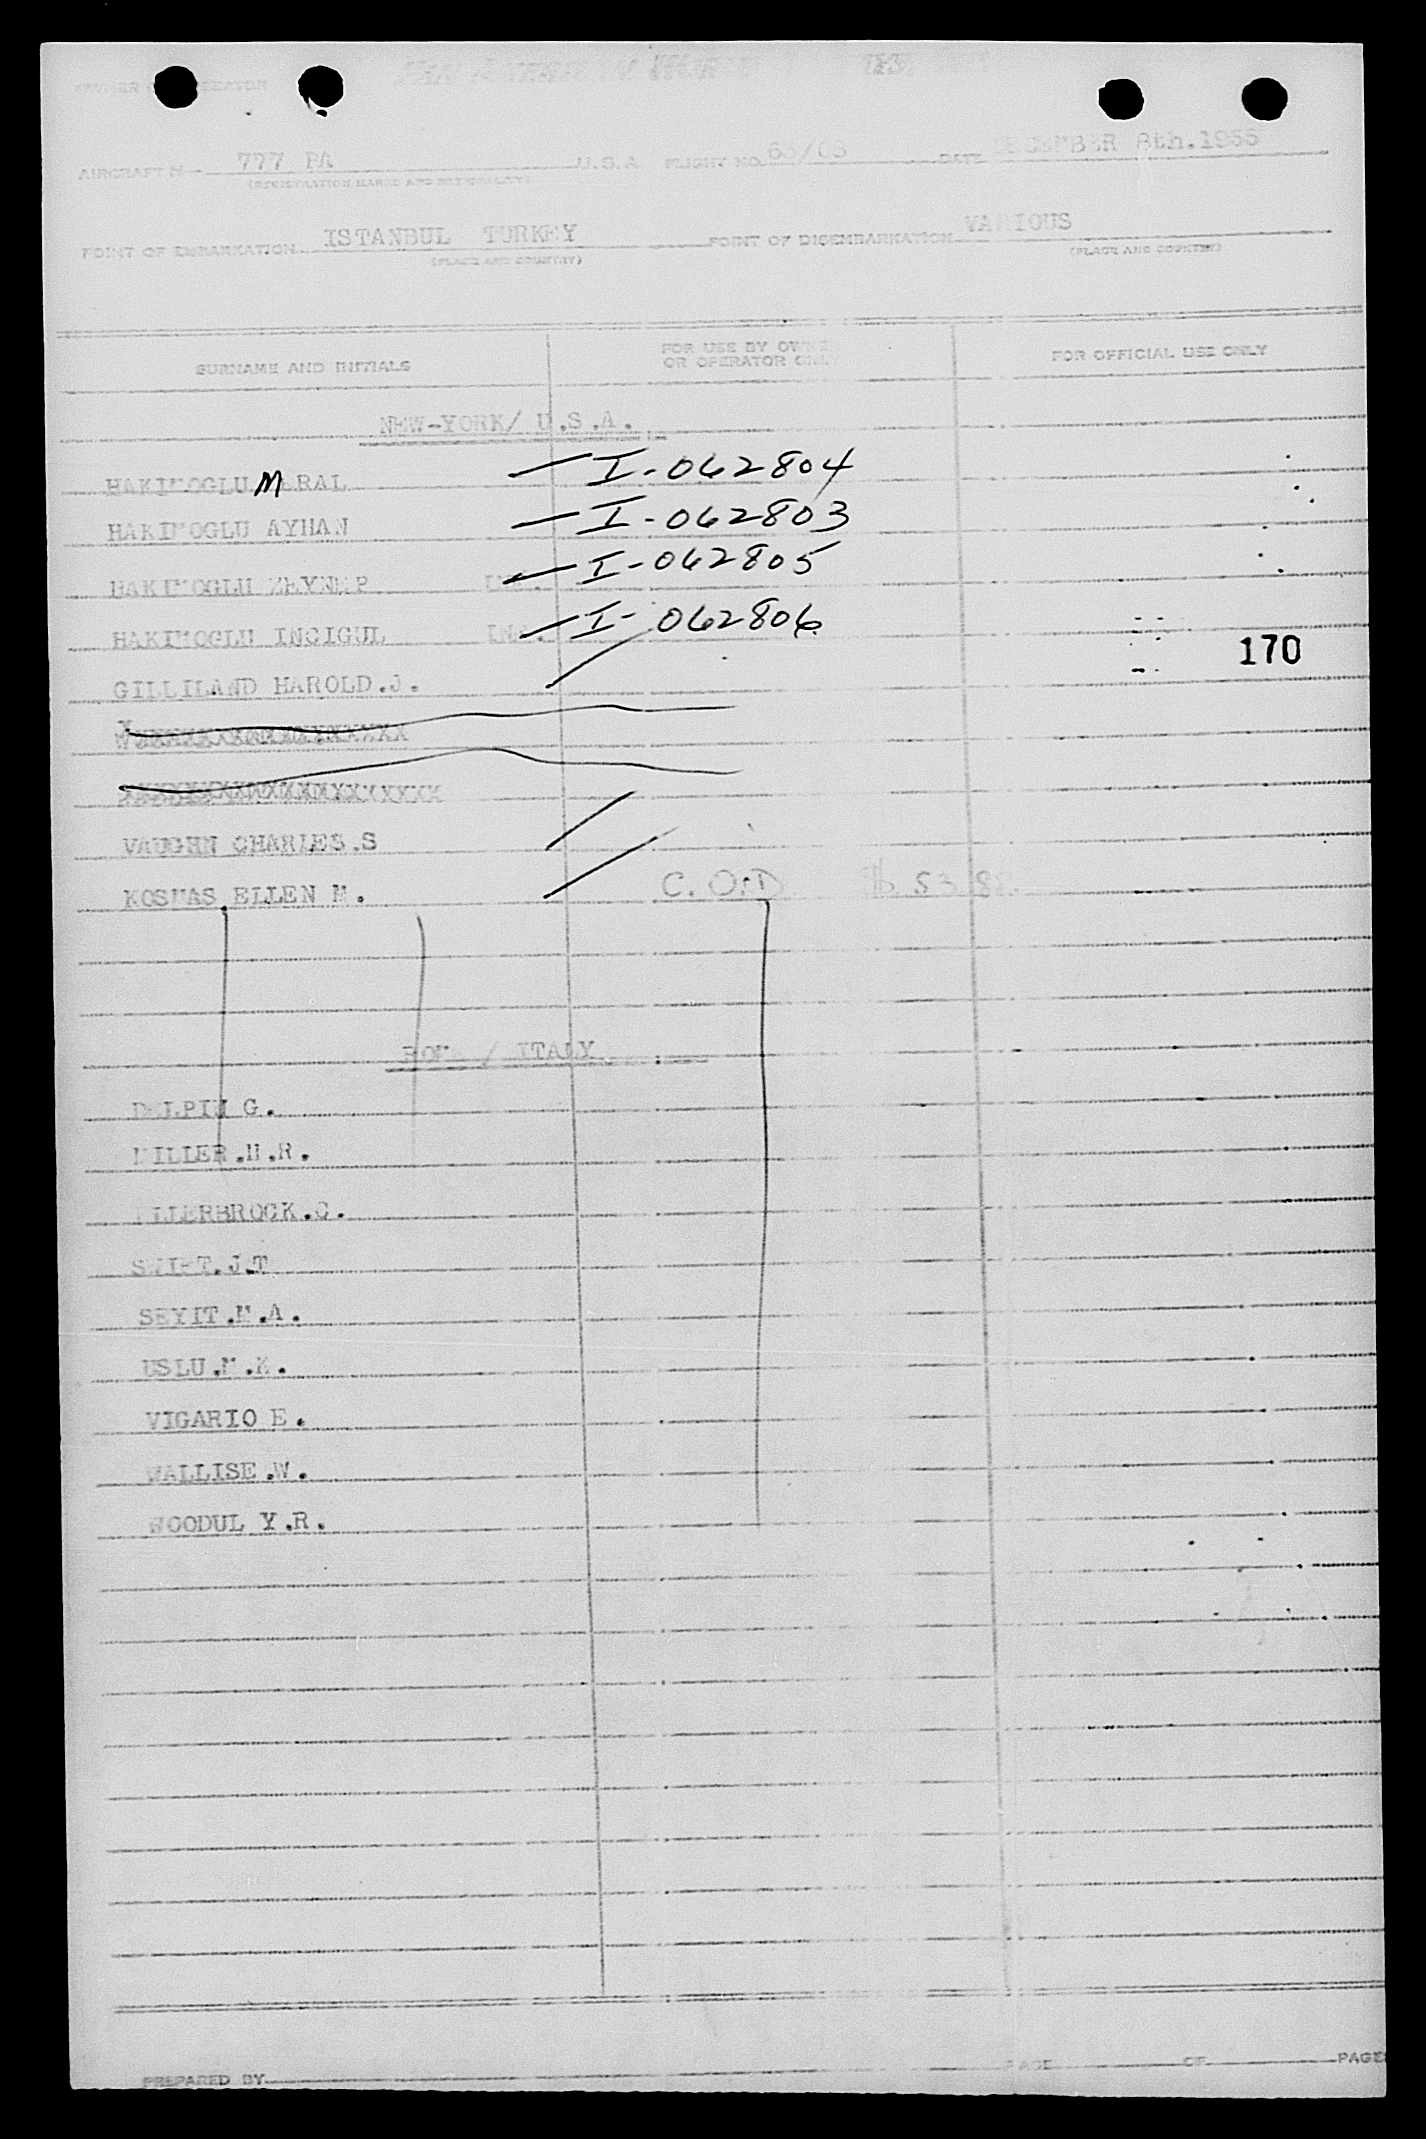 OWNER OR OPERATOR PAN AMERICAN WORLD
AIRCRAFT N 777 PA U.S.A FLIGHT NO. 63/03 DATE DECEMBER 8th.1955
(REGISTRATION MARKS AND NATIONALITY)
POINT OF EMBARKATION ISTANBUL TURKEY POINT OF DISEMBARKATION VARIOUS
(PLACE AND COUNTRY) (PLACE AND COUNTRY)
SURNAME AND INITIALS FOR USE BY OWNER OR OPERATOR ONLY FOR OFFICIAL USE ONLY
NEW-YORK/ U.S.A.
HAKIMOGLU MERAL I-062804
HAKIMOGLU AYHAN I-062803
HAKIMOGLU ZEYNEP INF. I-062805
HAKIMOGLU INCIGUL INF. I-062806
170
GILLILAND HAROLD.J.
VAUGHN CHARLES.S
KOSMAS ELLEN M. C.O.D
ROME / ITALY
DELPIN G.
MILLER.H.R.
ELLERBROCK.C.
SWIFT.J.T
SEYIT.M.A.
USLU.M.K.
VIGARIO E.
WALLISE.W.
WOODUL Y.R.
PREPARED BY PAGE OF PAGE